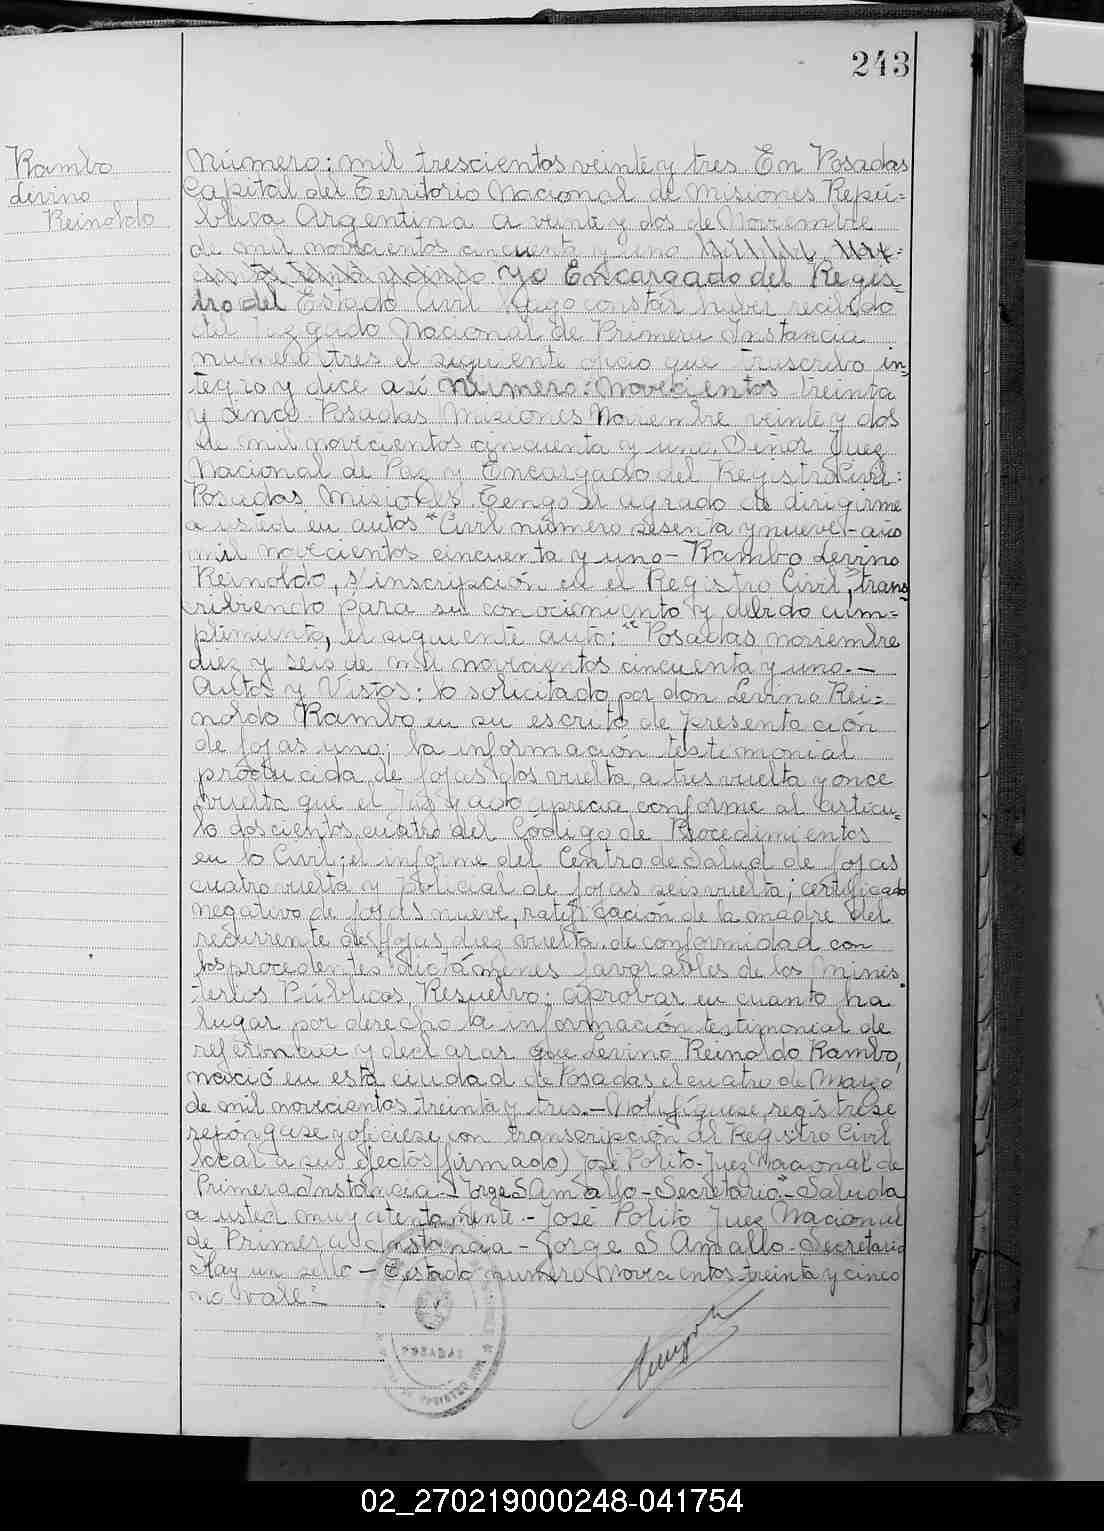 243
Rambo
Levino
Reinoldo
Número: mil trescientos veinte y tres. En Posadas
Capital del Territorio Nacional de Misiones Repú-
blica Argentina a veinte y dos de Noviembre
de mil novecientos cincuenta y uno
Yo Encargado del Regis-
tro del Estado Civil hago constar haber recibido
del Juzgado Nacional de Primera Instancia
numero tres el siguiente oficio que trascribo in-
tegro y dice así Número: Novecientos treinta
y cinco. Posadas, Misiones Noviembre veinte y dos
de mil novecientos cincuenta y uno. Señor Juez
Nacional de Paz y Encargado del Registro Civil:
Posadas Misiones. Tengo el agrado de dirigirme
a usted en autos "Civil número sesenta y nueve - año
mil novecientos cincuenta y uno - Rambo Levino
Reinoldo, s/inscripción en el Registro Civil", trans-
cribiendo para su conocimiento y debido cum-
plimiento, el siguiente auto: "Posadas, noviembre
diez y seis de mil novecientos cincuenta y uno.-
Autos y Vistos: lo solicitado por don Levino Rei-
noldo Rambo en su escrito de presentación
de fojas uno; la información testimonial
producida de fojas dos vuelta a tres vuelta y once
vuelta que el Juzgado aprecia conforme al artícu-
lo doscientos cuatro del Código de Procedimientos
en lo Civil; el informe del Centro de Salud de fojas
cuatro vuelta y policial de fojas seis vuelta; certificado
negativo de fojas nueve, ratificación de la madre del
recurrente de fojas diez vuelta. de conformidad con
los procedentes dictámenes favorables de los Minis-
terios Públicos, Resuelvo: aprobar en cuanto ha
lugar por derecho la información testimonial de
referencia y declarar que Levino Reinoldo Rambo,
nació en esta ciudad de Posadas el cuatro de Marzo
de mil novecientos treinta y tres.- Notifíquese, regístrese
repóngase y ofíciese con transcripción al Registro Civil
local a sus efectos (firmado) José Polito - Juez Nacional de
Primera Instancia - Jorge S Amallo - Secretario" - Saluda
a usted muy atentamente. - José Polito Juez Nacional
de Primera Instancia - Jorge S Amallo - Secretario
Hay un sello - Testado numero Novecientos treinta y cinco
no vale -
POSADAS
02_270219000248-041754